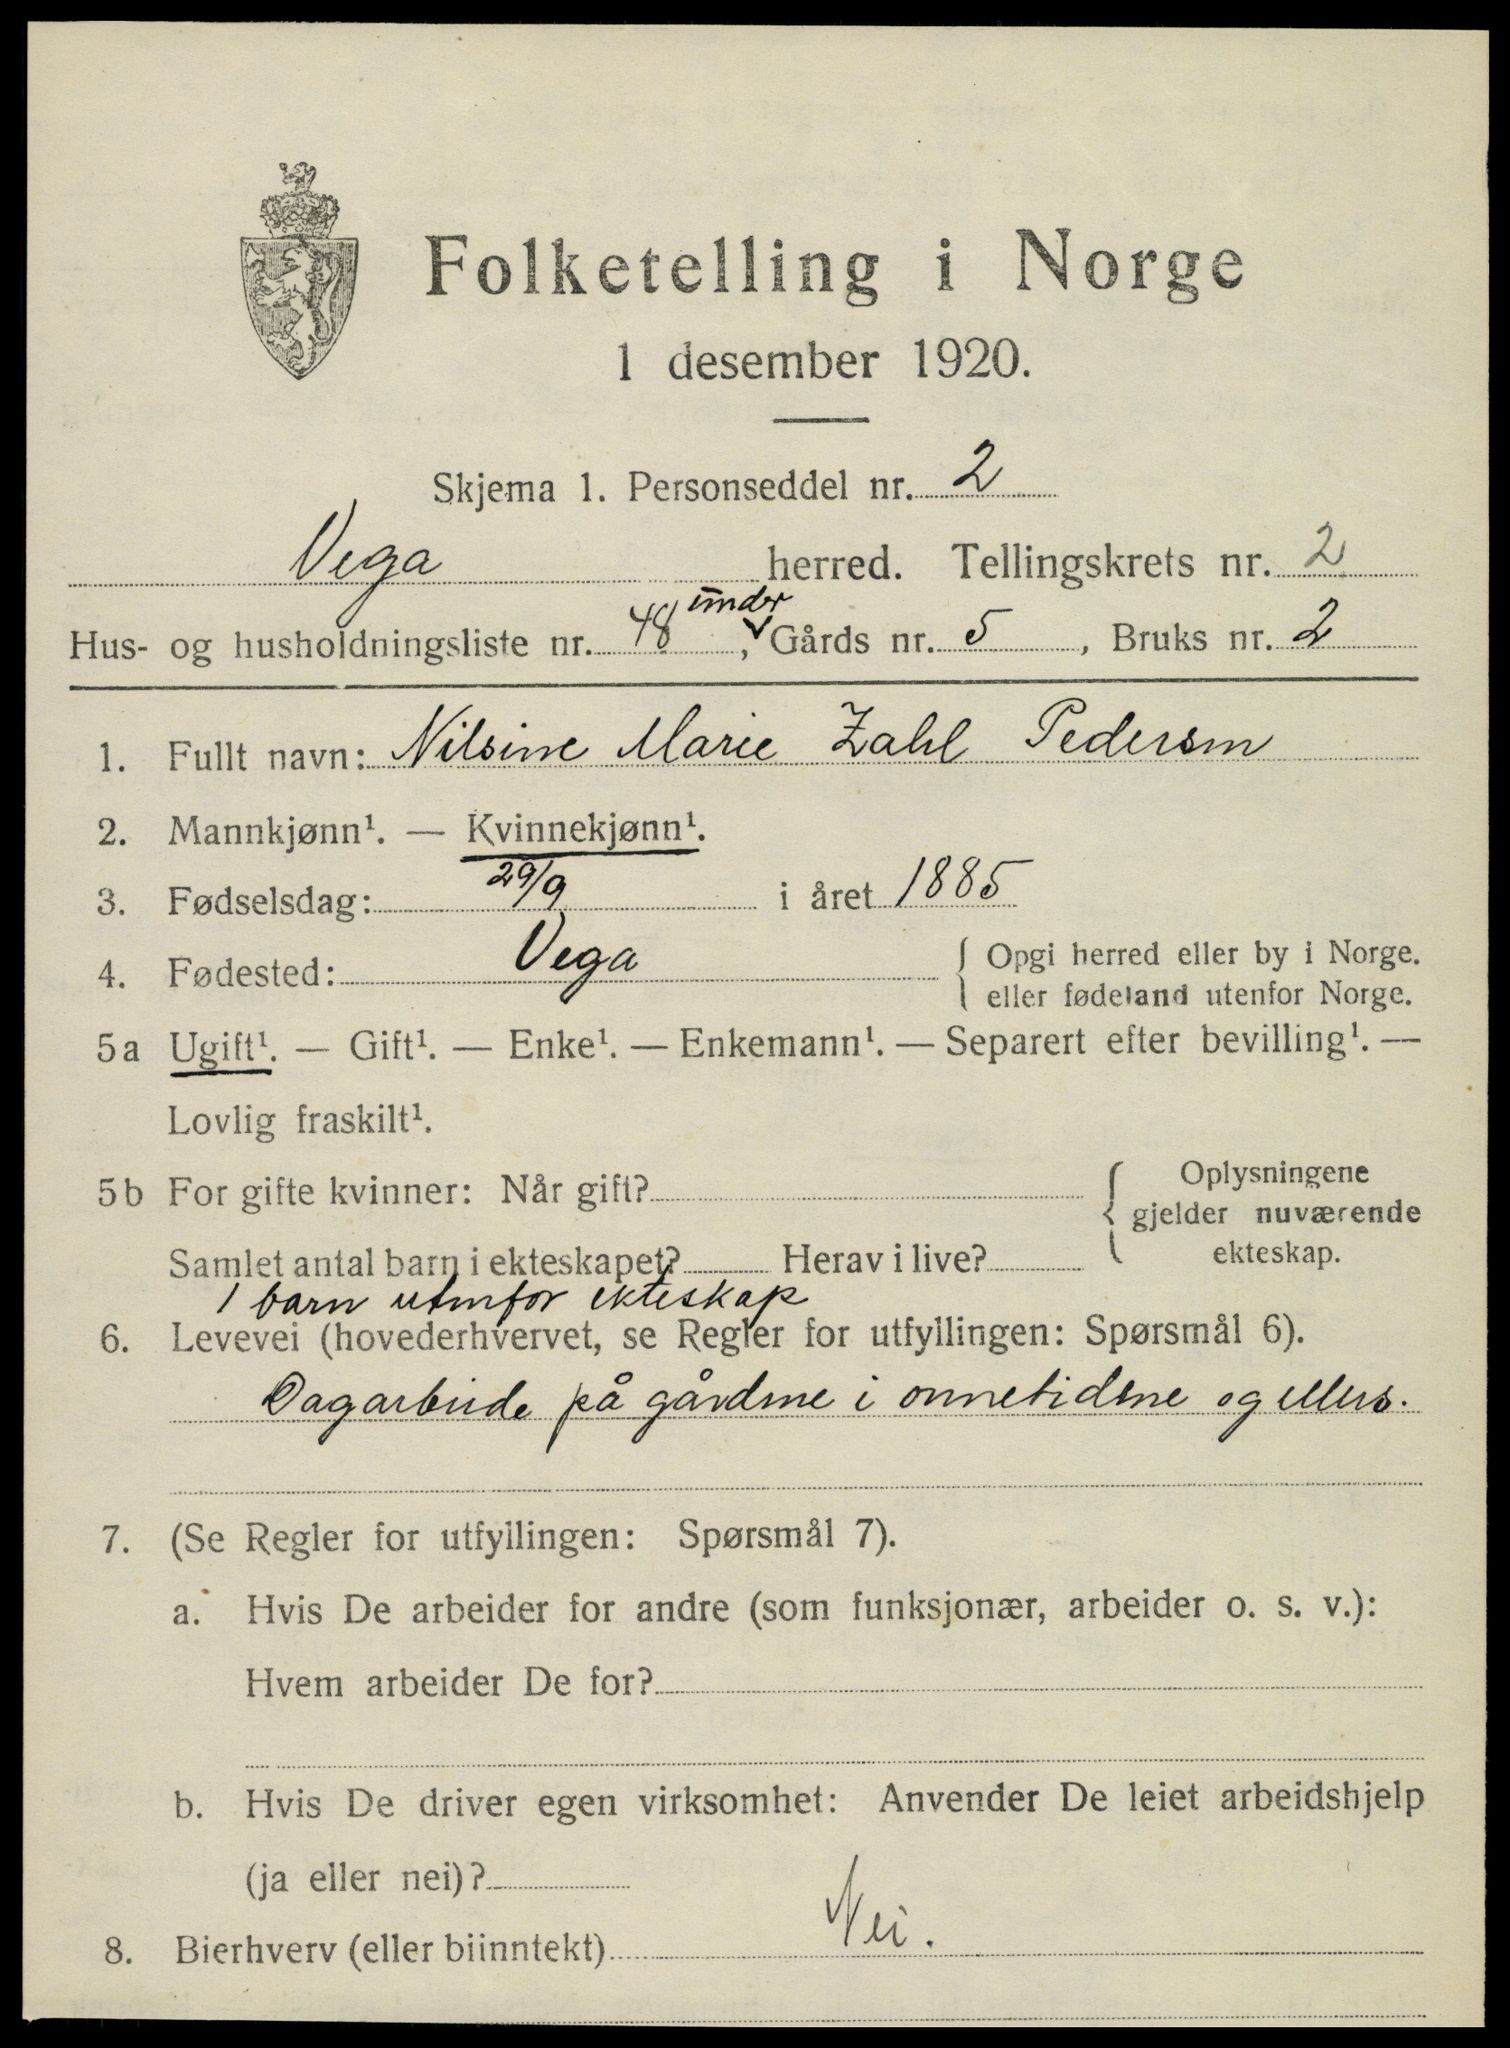 Folketelling i Norge
1 desember 1920.
Skjema 1. Personseddel nr. 2
Vega herred. Tellingskrets nr. 2
Hus- og husholdningsliste nr. 48, under Gårds nr. 5, Bruks nr. 2
1. Fullt navn: Nilsine Marie Zahl Pedersen
2. Mannkjønn¹. — Kvinnekjønn¹.
3. Fødselsdag: 29/9 i året 1885
4. Fødested: Vega { Opgi herred eller by i Norge.
eller fødeland utenfor Norge.
5a Ugift¹. — Gift¹. — Enke¹. — Enkemann¹. — Separert efter bevilling¹. —
Lovlig fraskilt¹.
5b For gifte kvinner: Når gift? { Oplysningene
gjelder nuværende
ekteskap.
Samlet antal barn i ekteskapet? Herav i live?
1 barn utenfor ekteskap
6. Levevei (hovederhvervet, se Regler for utfyllingen: Spørsmål 6).
Dagarbeide på gårdene i onnetidene og ellers.
7. (Se Regler for utfyllingen: Spørsmål 7).
a. Hvis De arbeider for andre (som funksjonær, arbeider o. s. v.):
Hvem arbeider De for?
b. Hvis De driver egen virksomhet: Anvender De leiet arbeidshjelp
(ja eller nei)?
8. Bierhverv (eller biinntekt) Nei.